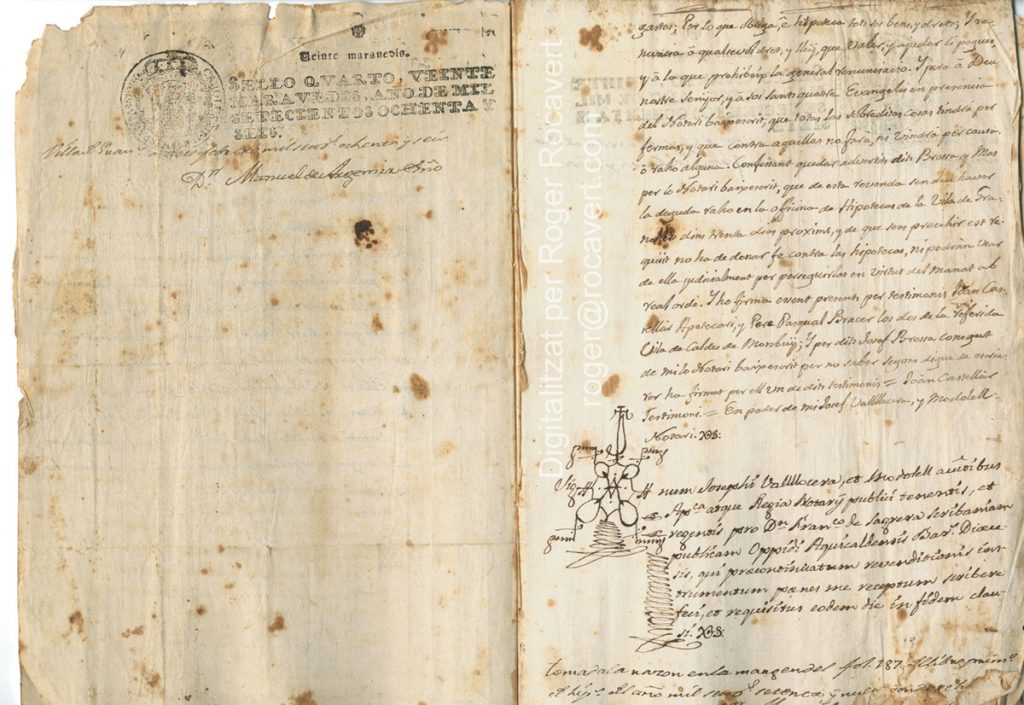 Veinte maravedis.
SELLO QVARTO, VEINTE
MARAVEDIS, AÑO DE MIL
SETECIENTOS OCHENTA Y
SEIS.
mil ochenta y seis
Dn. Manuel de
gastos; Per lo que obliga, è hipoteca tots sos bens, y drets; Y re
nuncia à qualsevol dret, y lley, que valer, y ajudar lo pogues,
y à la que prohibeix la general renunciacio. Y jura à Deu
nostre Senyor, y à sos sants quatre Evangelis en presencia
del Notari baixescrit, que totas las sobreditas cosas tindrà per
fermas, y que contra aquellas no farà, ni vindrà per causa,
ò rahò alguna. Confessant quedar advertits dits Brossa y Mas
per lo Notari baixescrit, que de esta revenda sen deu haver
la deguda rahò en la officina de Hipotecas de la Vila de Gra
nollers dins trenta dias proxims, y de que sens procehir est re
quisit no ha de donar fe contra las hipotecas, ni podràn usar
de ella judicialment per perseguirlas en virtut del manat ab
real orde. Y ho firma essent presents per testimonis Joan Cas
tellar Apotecari, y Pere Pasqual Bracer los dos de la referida
Vila de Caldes de Monbuy; Y per dit Josef Brossa conegut
de mi lo Notari baixescrit per no saber segons digue de escriu
rer ha firmat per ell un de dits testimonis = Joan Castellar
Testimoni. = En poder de mi Josef Vallllocera, y Modolell
Notari.
Sig num Josephi Vallllocera, et Modolell auctibus
Apca. atque Regia Notarij publici tenentis, et
regentis pro Dn. Franco. de Sagrera scribaniam
publicam Oppidi Aquicaldensis Bar. Dioece
sis, qui præcontinuatum revenditionis ins
trumentum pænes me receptum scribere
feci, et requisitus eodem die in fidem clau
si.
tomada la razon en la margen del fol. 187. del libro
el año mil setenta, y nueve
Digitalitzat per Roger Rocavert
roger@rocavert.com